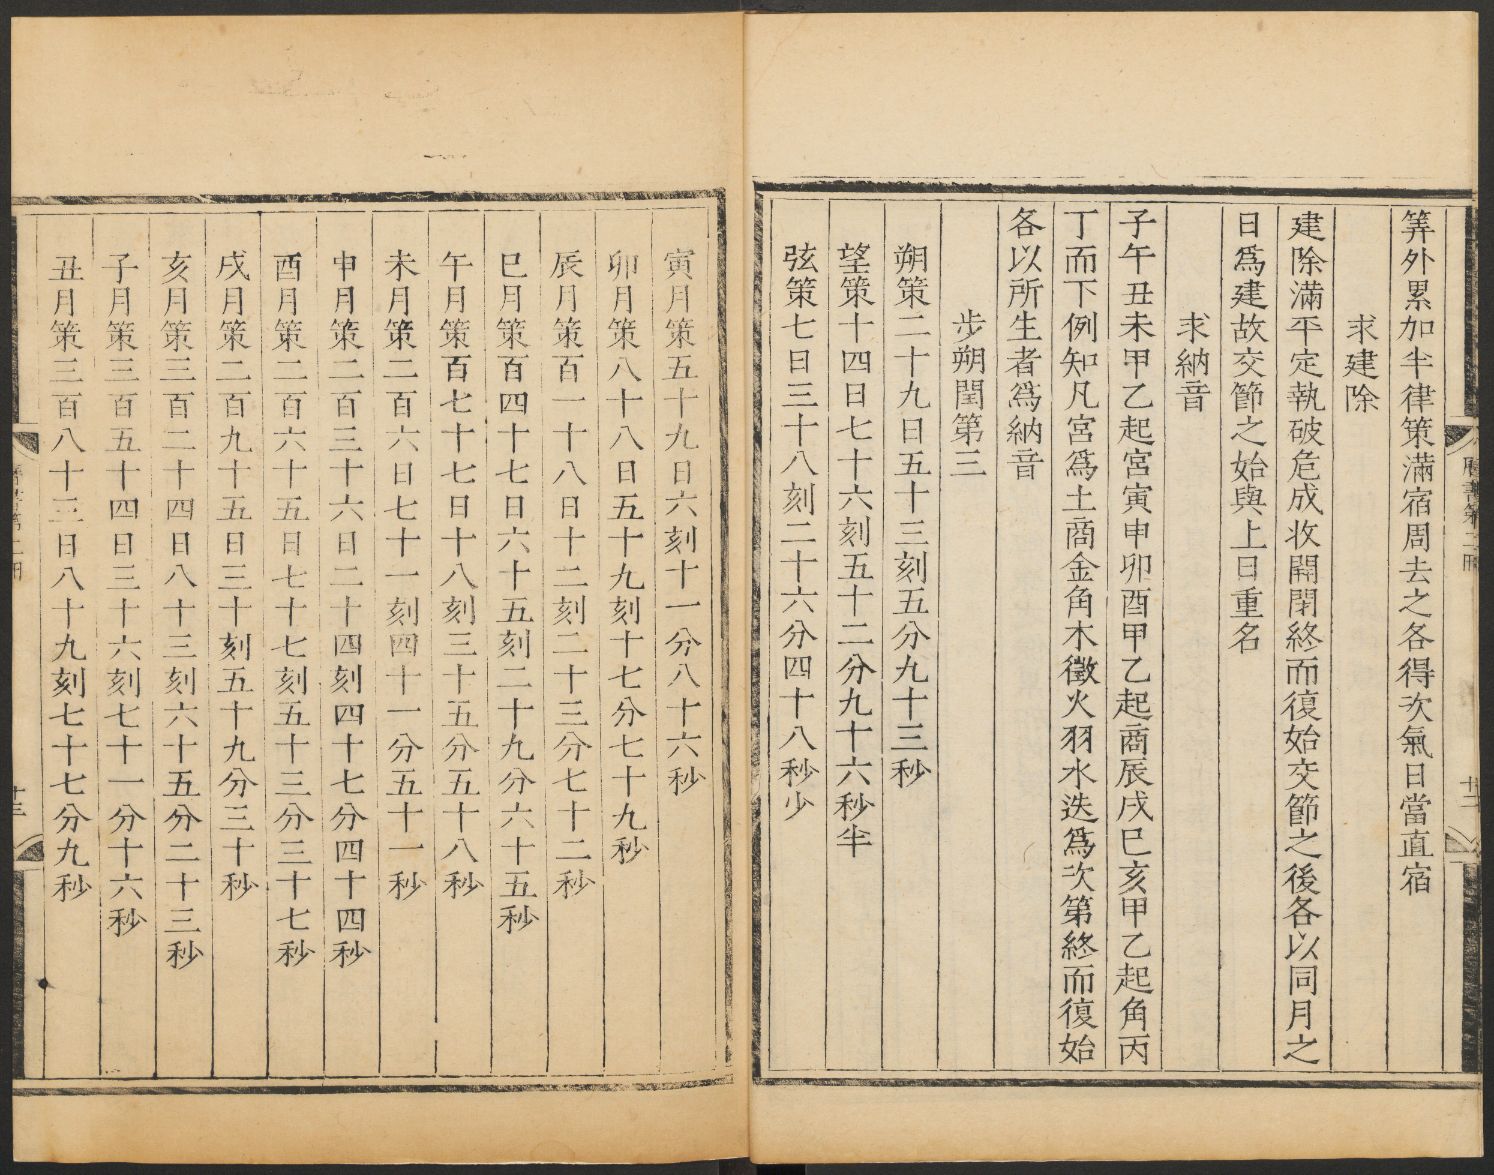 筭外累加半律策滿宿周去之各得次氣日當直宿
求建除
建除滿平定執破危成收開閉終而復始交節之後各以同月之
日爲建故交節之始與上日重名
求納音
子午丑未甲乙起宮寅申卯酉甲乙起商辰戌巳亥甲乙起角丙
丁而下例知凡宮爲土商金角木徵火羽水迭爲次第終而復始
各以所生者爲納音
步朔閏第三
朔策二十九日五十三刻五分九十三秒
望策十四日七十六刻五十二分九十六秒半
弦策七日三十八刻二十六分四十八秒少
曆書第二冊
十二
寅月策五十九日六刻十一分八十六秒
卯月策八十八日五十九刻十七分七十九秒
辰月策百一十八日十二刻二十三分七十二秒
巳月策百四十七日六十五刻二十九分六十五秒
午月策百七十七日十八刻三十五分五十八秒
未月策二百六日七十一刻四十一分五十一秒
申月策二百三十六日二十四刻四十七分四十四秒
酉月策二百六十五日七十七刻五十三分三十七秒
戌月策二百九十五日三十刻五十九分三十秒
亥月策三百二十四日八十三刻六十五分二十三秒
子月策三百五十四日三十六刻七十一分十六秒
丑月策三百八十三日八十九刻七十七分九秒
曆書第二冊
十三